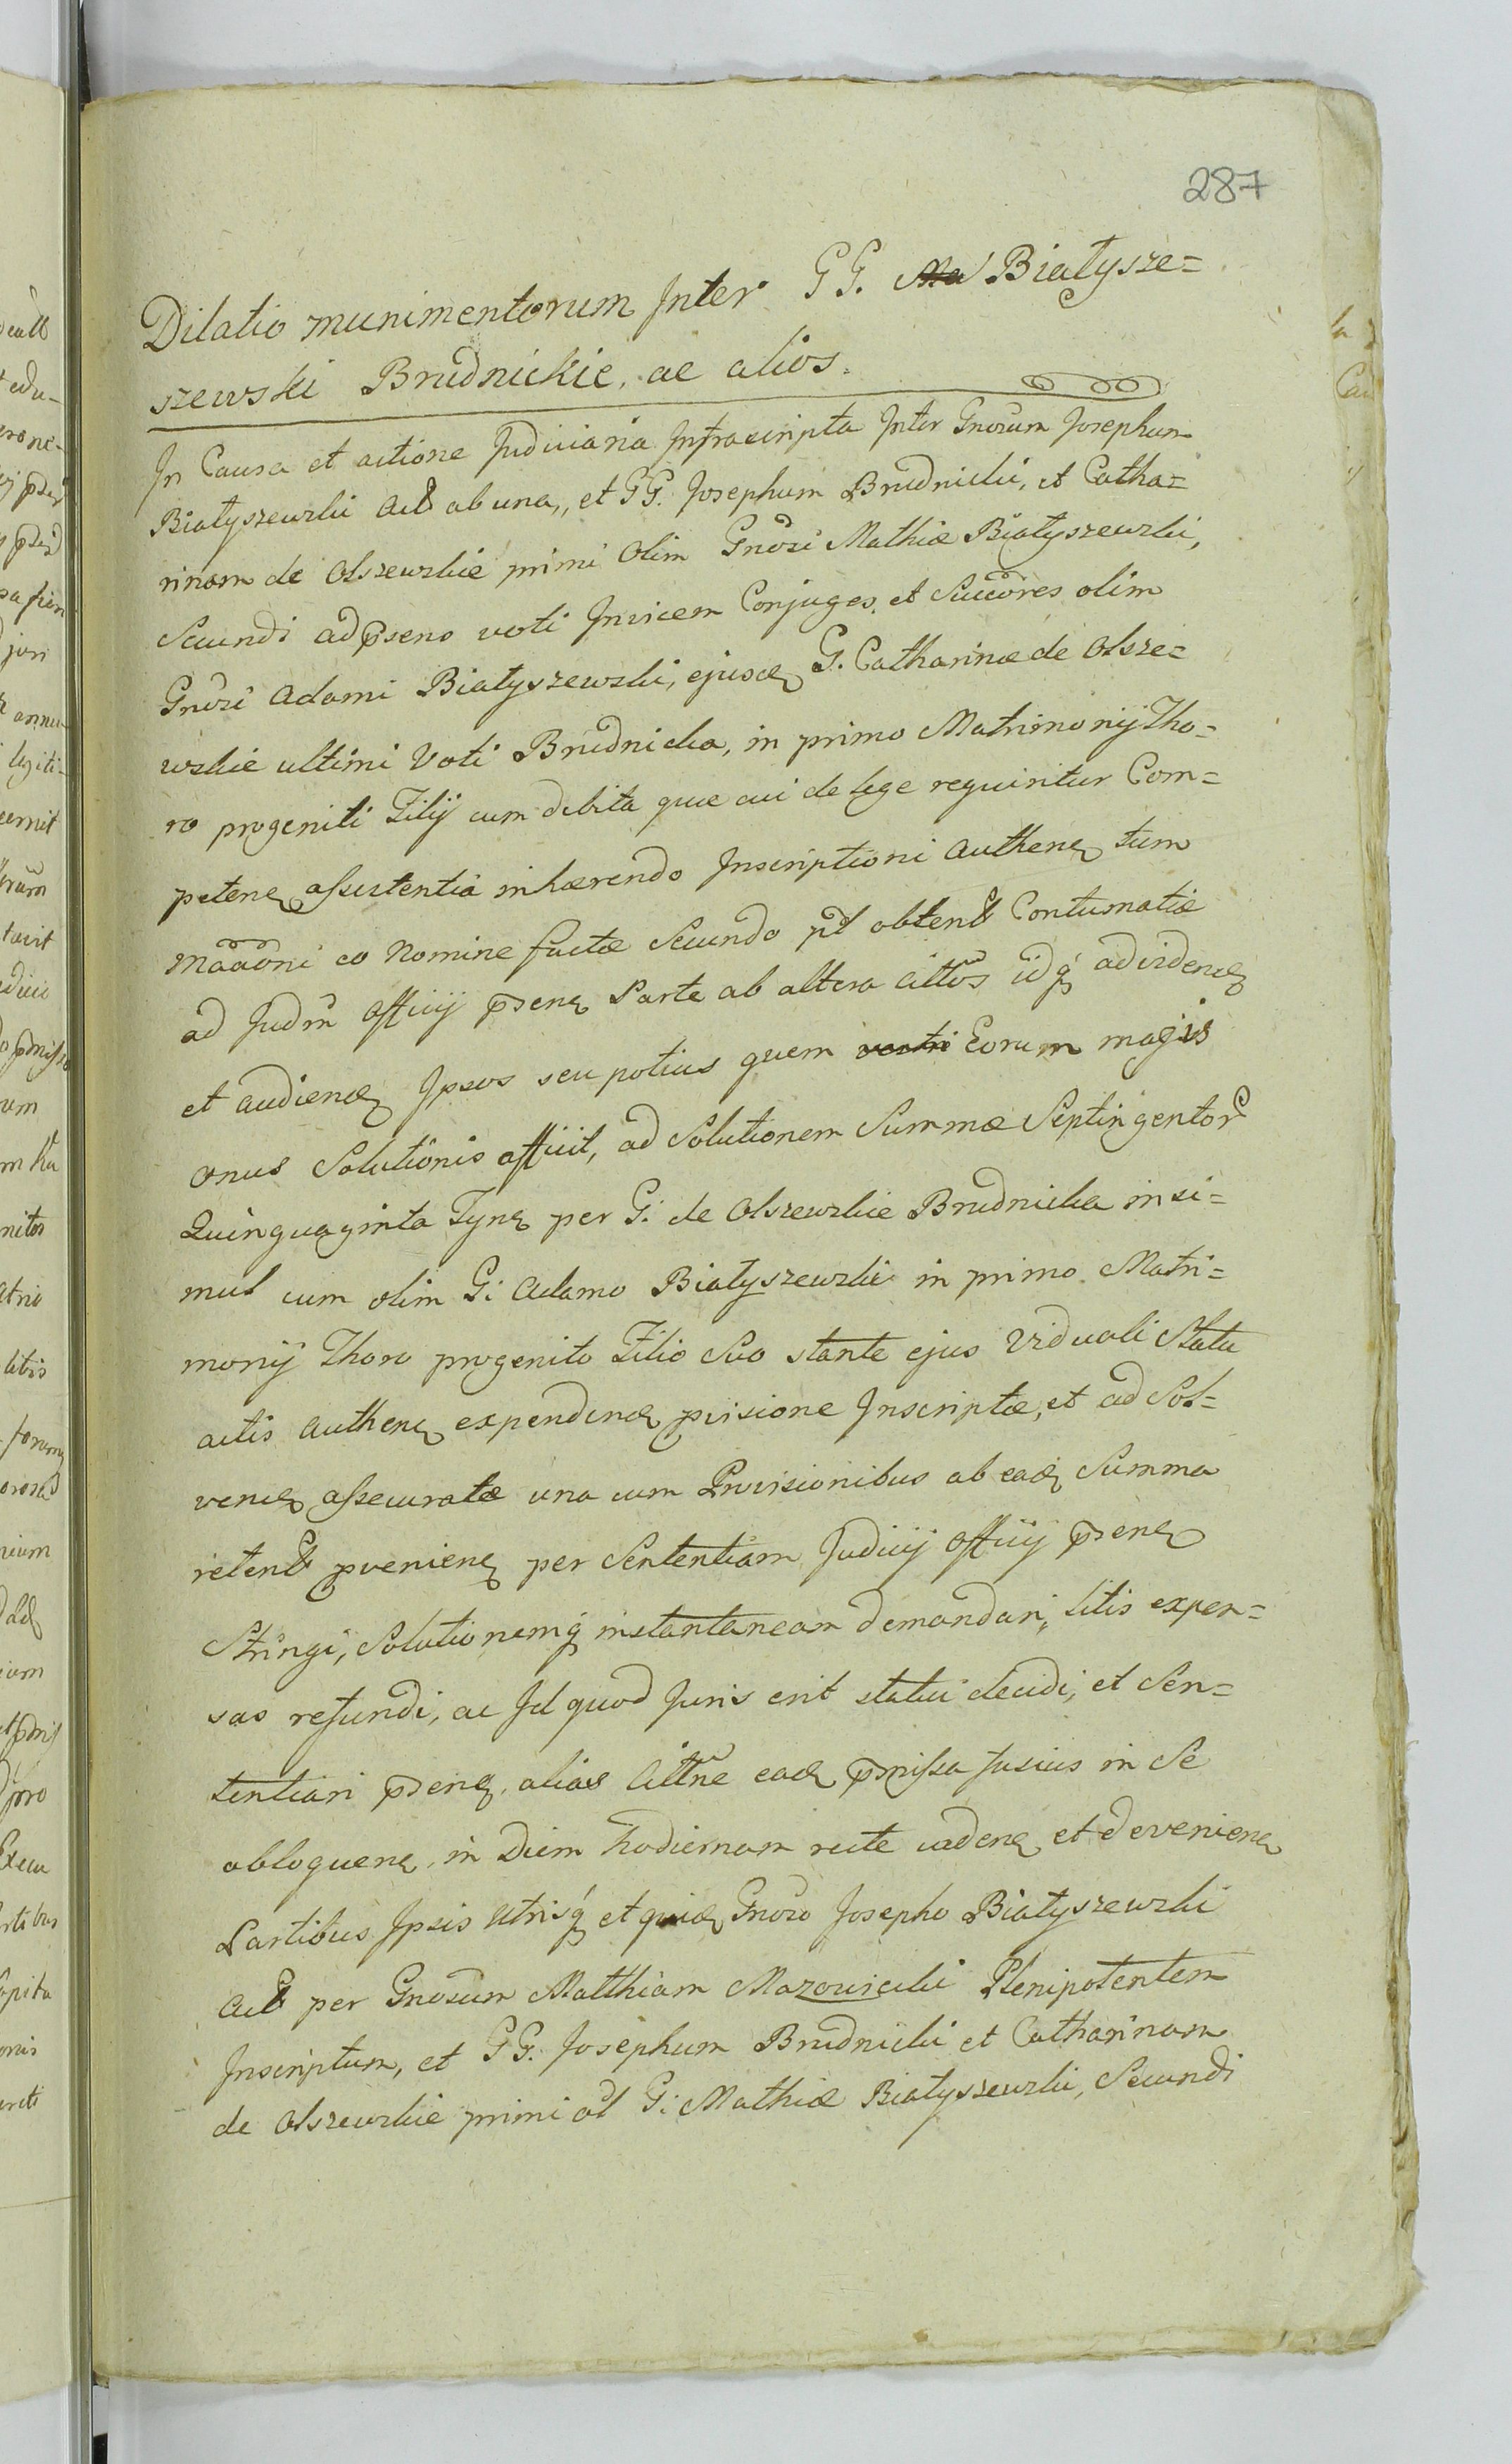 287
Dilatio munimentorum Inter GG. Białysze=
szewski Brudnickie, ac alios.
In Causa et actione Judiciaria Infrascripta Inter Gnõsum Josephum
Białyszewski Act ab una, et GG. Josephum Brudnicki, et Catha=
rinam de Olszewskie primi Olim Gnõsi Mathiæ Białyszewski,
Secundi ad p̃sens voti Invicem Conjuges, et Succõres olim
Gnõsi Adami Białyszewski, ejusdꝫ G. Catharinæ de Olsze=
wskie ultimi Voti Brudnicka, in primo Matrimonij Tho=
ro progeniti Filij cum debita quæ cui de lege requiritur Com=
petenꝫ assistentia inhærendo Inscriptioni Authenꝫ tum
eo Nomine factæ Secundo pt̃ obtent Contumatiæ
ad Judm̃ Officij p̃senꝫ Parte ab altera Cittõs idq́ꝫ ad videndꝫ
et audiendꝫ Ipsos seu potius quem Eorum magis
onus Solutionis afficit, ad Solutionem Summæ Septingentor
Quinquaginta Fynꝫ per G. de Olszewskie Brudnicka insi=
mul cum olim G. Adamo Białyszewski in primo Matri=
monij Thoro progenito Filio Suo stante ejus Viduali Statu
actis Authenꝫ expendendꝫ pvisione Inscriptæ, et ad Sol=
vendꝫ assecuratæ una cum Provisionibus ab eadꝫ Summa
retent pvenienꝫ per Sententiam Judicij Officij p̃senꝫ
Stringi, Solutionemq́ꝫ instantaneam demandari, litis expen=
sas refundi, ac Id quod Juris erit statui decidi, et Sen=
tentiari p̃senꝫ, alias Cittñe eadꝫ p̃missa fusius in Se
obloquenꝫ, in Diem hodiernam recte cadenꝫ et devenienꝫ
Partibus Ipsis utrisq́ꝫ et quidꝫ Gnõso Josepho Białyszewski
Act per Gnõsum Matthiam Mazowiecki Plenipotentem
Inscriptum, et GG. Josephum Brudnicki et Catharinam
de Olszewskie primi ol G. Mathiæ Białyszewski, Secundi